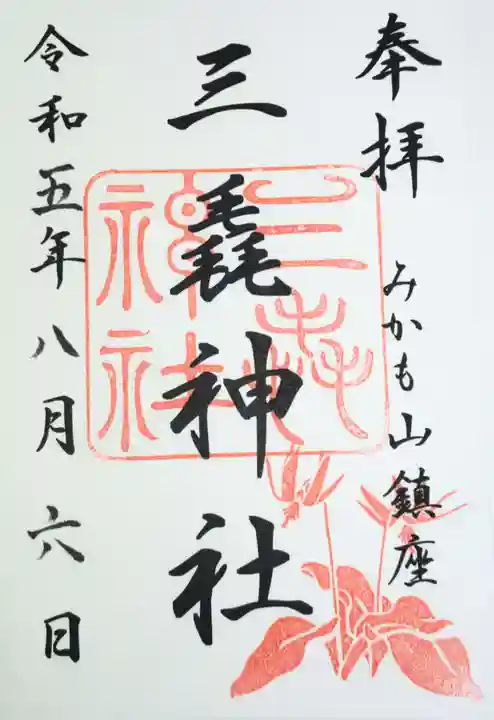 奉拝
みかも山鎮座
三毳神社
令和五年八月六日
三毳神社